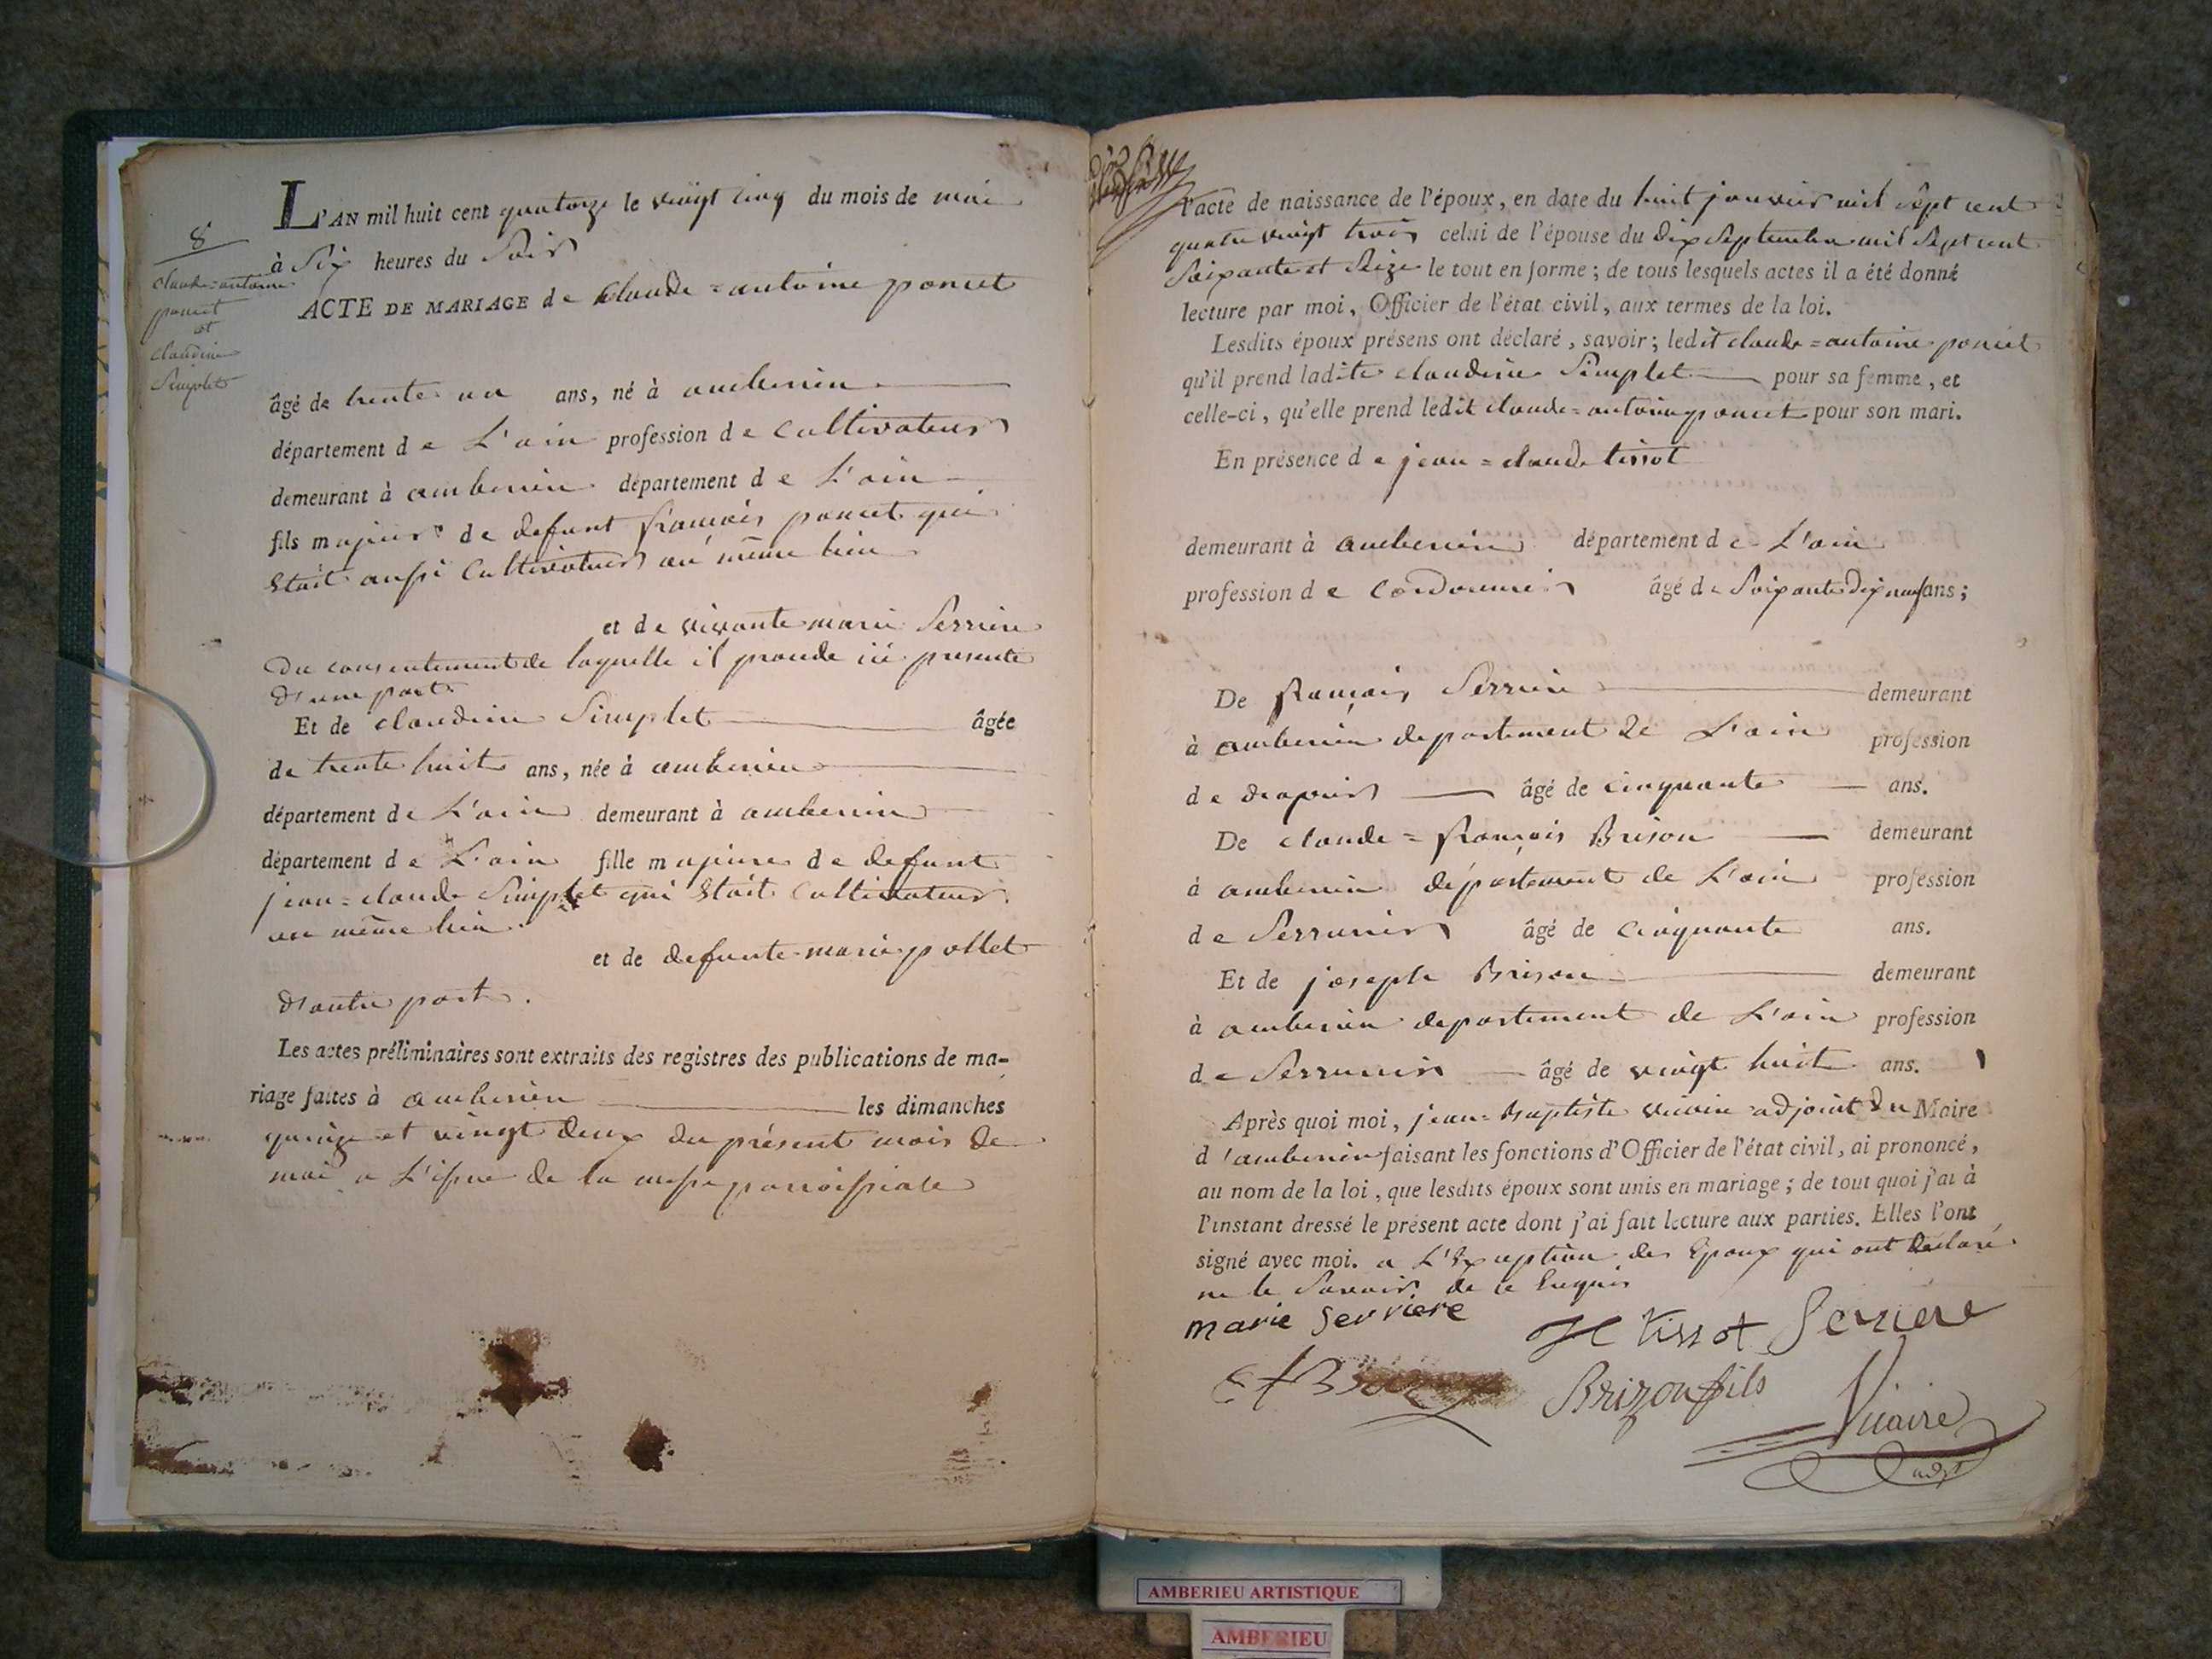 8
claude=antoine
poncet
et
claudine
Simplet
L'AN mil huit cent quatorze le vingt cinq du mois de mai
à Six heures du Soir
ACTE DE MARIAGE de claude=antoine poncet
âgé de trente un ans, né à amberieu
département de L'ain profession de cultivateur
demeurant à amberieu département de L'ain
fils majeur de defunt francois poncet qui
Etait aussi Cultivateur au même lieu
et de vivante marie Serriere
Du consentement de laquelle il procede ici presente
D'une part
Et de claudine Simplet âgée
de trente huit ans, née à amberieu
département de L'ain demeurant à amberieu
département de L'ain fille majeure de defunt
jean=claude Simplet qui Etait Cultivateur
au même lieu
et de defunte marie pollet
D'autre part.
Les actes préliminaires sont extraits des registres des publications de ma-
riage faites à amberieu les dimanches
quinze et vingt deux du présent mois de
mai a L'issue de la messe paroissiale
l'acte de naissance de l'époux, en date du huit janvier mil sept cent
quatre vingt trois celui de l'épouse du dix Septembre mil Sept cent
Soixante et Seize le tout en forme ; de tous lesquels actes il a été donné
lecture par moi, Officier de l'état civil, aux termes de la loi.
Lesdits époux présens ont déclaré, savoir ; ledit claude=antoine poncet
qu'il prend ladite claudine Simplet pour sa femme, et
celle-ci, qu'elle prend ledit claude=antoine poncet pour son mari.
En présence de jean=claude tissot
demeurant à amberieu département de L'ain
profession de Cordonnier âgé de Soixante dix neuf ans ;
De francois Serriere demeurant
à amberieu departement de L'ain profession
de drapier âgé de cinquante ans.
De claude=françois Brison demeurant
à amberieu département de L'ain profession
de Serrurier âgé de cinquante ans.
Et de joseph Brison demeurant
à amberieu departement de L'ain profession
de Serrurier âgé de vingt huit ans.
Après quoi moi, jean=baptiste vicaire adjoint du Maire
d'amberieu faisant les fonctions d'Officier de l'état civil, ai prononcé,
au nom de la loi, que lesdits époux sont unis en mariage ; de tout quoi j'ai à
l'instant dressé le présent acte dont j'ai fait lecture aux parties. Elles l'ont
signé avec moi. a L'Exception des Epoux qui ont declaré
ne le Savoir de ce Enquis
marie Serriere
JC tissot Serriere
Brizon fils
Vicaire
adjt
AMBERIEU ARTISTIQUE
AMBERIEU